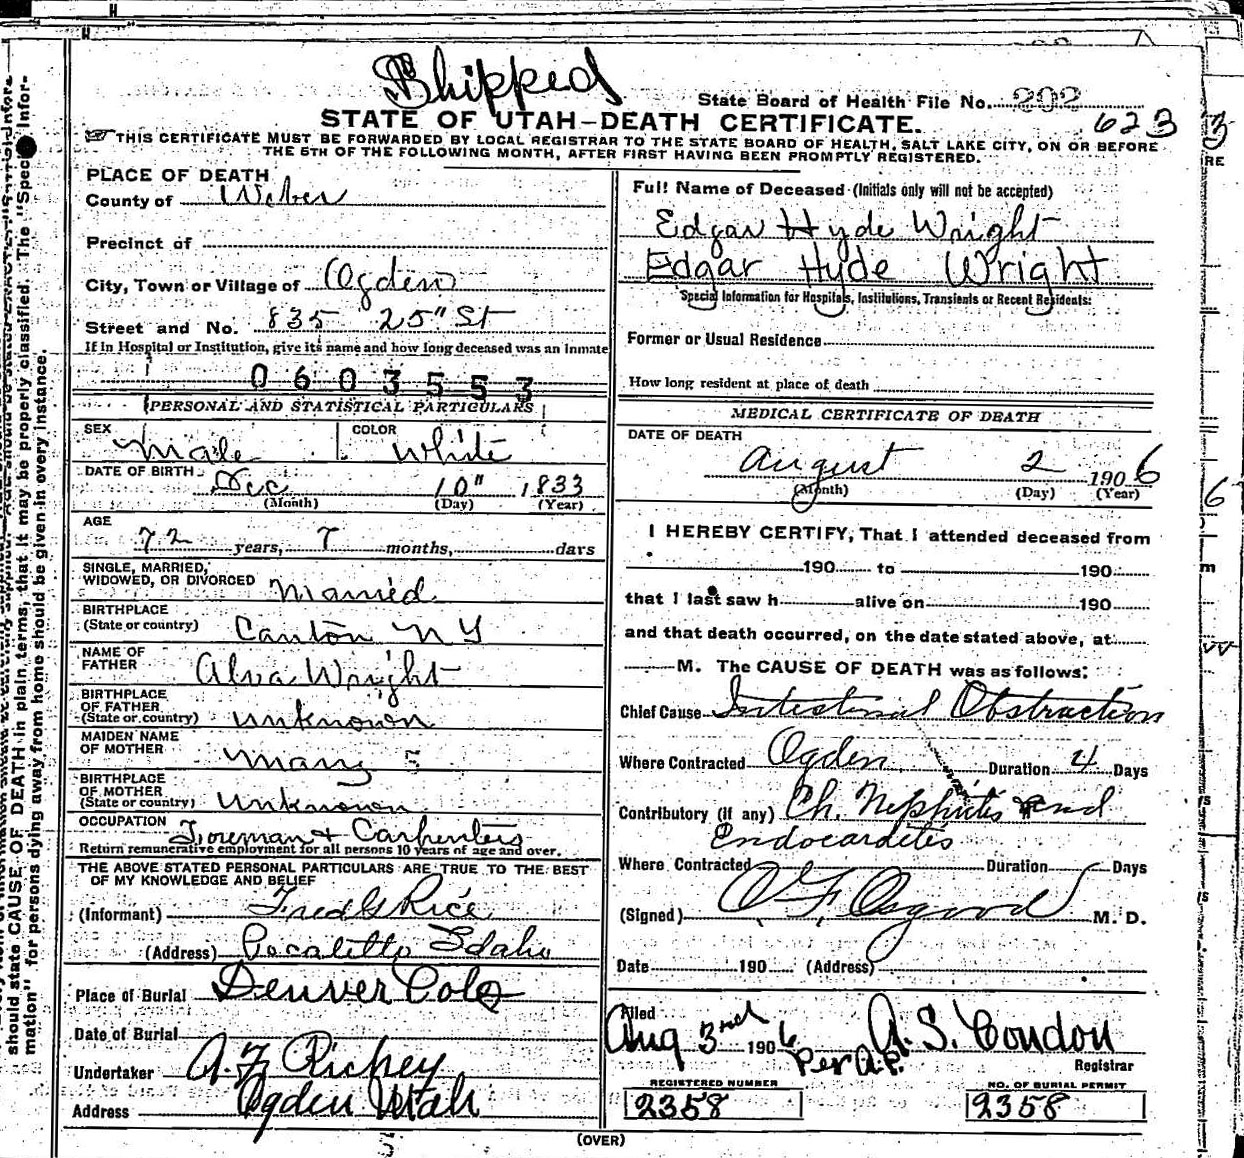 Shipped
State Board of Health File No. 202
623
STATE OF UTAH—DEATH CERTIFICATE.
THIS CERTIFICATE MUST BE FORWARDED BY LOCAL REGISTRAR TO THE STATE BOARD OF HEALTH, SALT LAKE CITY, ON OR BEFORE
THE 5TH OF THE FOLLOWING MONTH, AFTER FIRST HAVING BEEN PROMPTLY REGISTERED.
PLACE OF DEATH
County of Weber
Precinct of
City, Town or Village of Ogden
Street and No. 835 25" St
If in Hospital or Institution, give its name and how long deceased was an inmate
0603553
PERSONAL AND STATISTICAL PARTICULARS
SEX Male COLOR White
DATE OF BIRTH Dec 10" 1833
(Month) (Day) (Year)
AGE
72 years, 7 months, days
SINGLE, MARRIED,
WIDOWED, OR DIVORCED Married
BIRTHPLACE
(State or country) Canton N Y
NAME OF
FATHER Alva Wright
BIRTHPLACE
OF FATHER
(State or country) Unknown
MAIDEN NAME
OF MOTHER Mary
BIRTHPLACE
OF MOTHER
(State or country) Unknown
OCCUPATION Foreman + Carpenters
Return remunerative employment for all persons 10 years of age and over.
THE ABOVE STATED PERSONAL PARTICULARS ARE TRUE TO THE BEST
OF MY KNOWLEDGE AND BELIEF
(Informant) Fred G Rice
(Address) Pocatello Idaho
Place of Burial Denver Colo
Date of Burial
Undertaker A. F. Richey
Address Ogden Utah
Full Name of Deceased (Initials only will not be accepted)
Edgar Hyde Wright
Edgar Hyde Wright
Special Information for Hospitals, Institutions, Transients or Recent Residents:
Former or Usual Residence
How long resident at place of death
MEDICAL CERTIFICATE OF DEATH
DATE OF DEATH
August 2 1906
(Month) (Day) (Year)
I HEREBY CERTIFY, That I attended deceased from
190 to 190
that I last saw h alive on 190
and that death occurred, on the date stated above, at
M. The CAUSE OF DEATH was as follows:
Chief Cause Intestinal Obstruction
Where Contracted Ogden Duration 4 Days
Contributory (if any) Ch. Nephritis and
Endocarditis
Where Contracted Duration Days
(Signed) O F Osgood M. D.
Date 190 (Address)
Filed
Aug 3rd 1906 A. S. Condon
Per A.P. Registrar
REGISTERED NUMBER NO. OF BURIAL PERMIT
2358 2358
(OVER)
should state CAUSE OF DEATH in plain terms, that it may be properly classified. The "Special Infor-
mation" for persons dying away from home should be given in every instance.